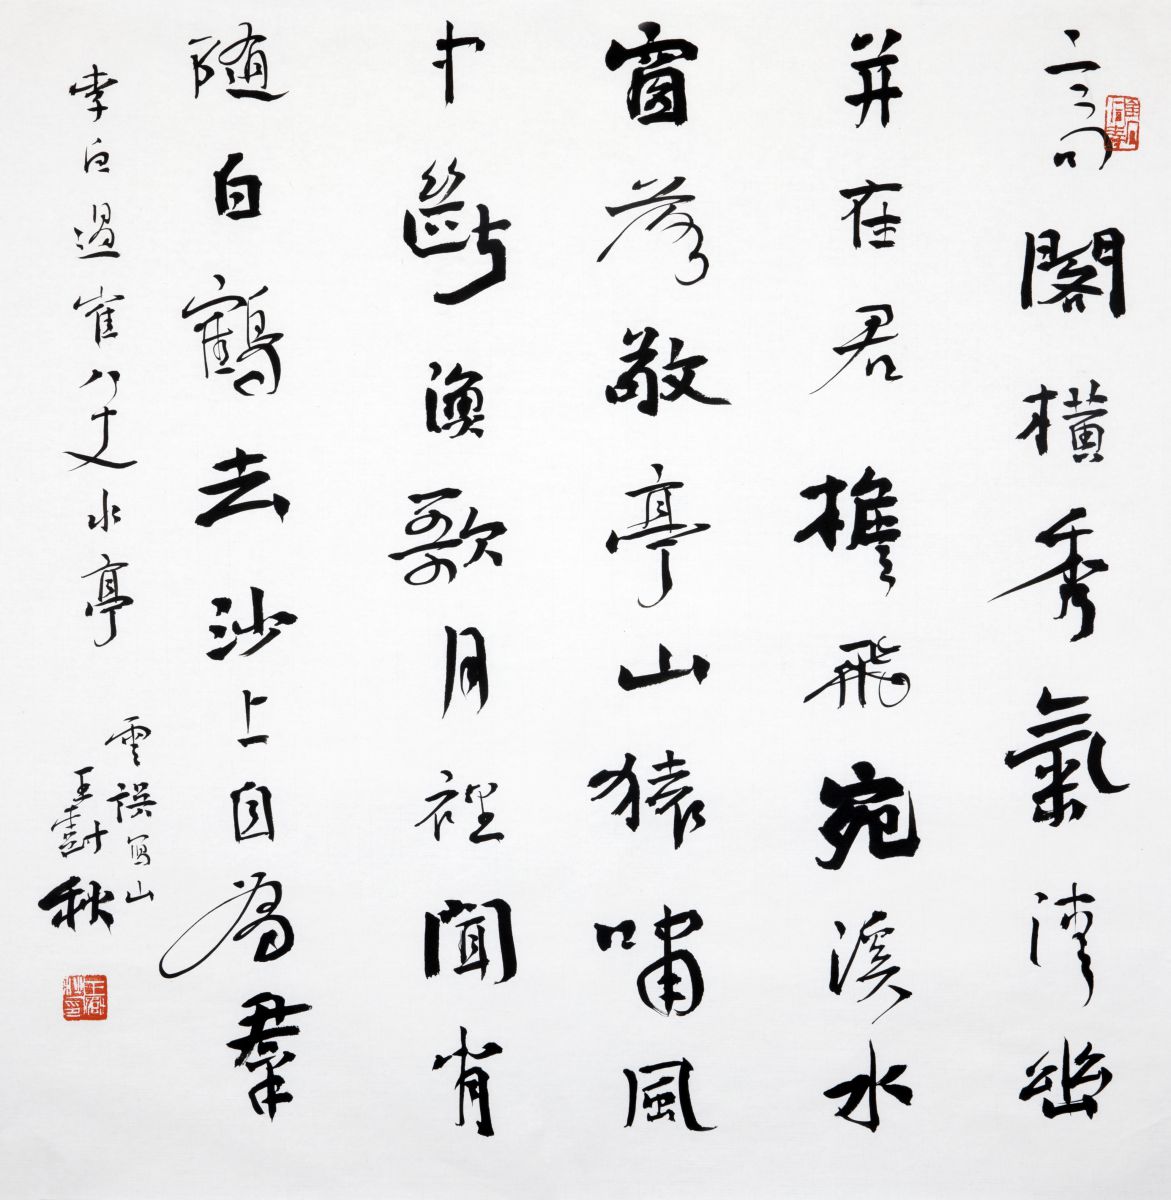 高閣橫秀氣清幽
并在君檐飛宛溪水
窗落敬亭山猿嘯風
中斷漁歌月裡聞肖
隨白鶴去沙上自為羣
李白過崔八丈水亭
雲誤寫山
王樹秋